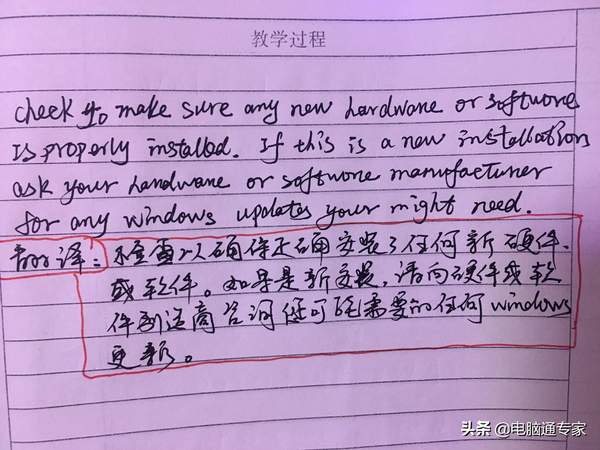 教学过程
check to make sure any new hardware or software
is properly installed. If this is a new installation
ask your hardware or software manufacturer
for any windows updates your might need.
翻译：检查以确保正确安装了任何新硬件
或软件。如果是新安装，请向硬件或软
件制造商咨询您可能需要的任何windows
更新。
头条 @电脑通专家